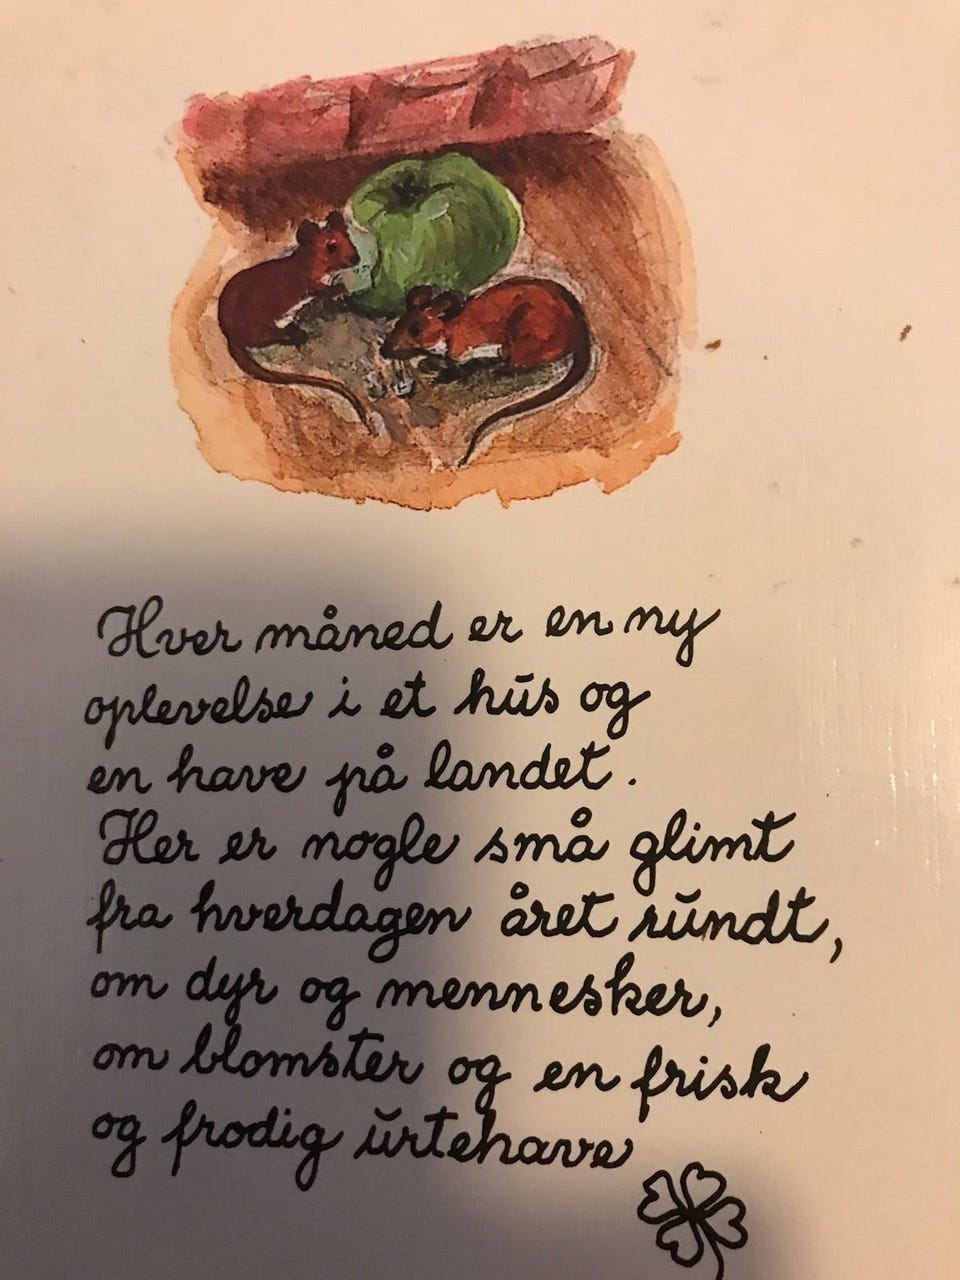 Hver måned er en ny
oplevelse i et hŭs og
en have på landet.
Her er nogle små glimt
fra hverdagen året rŭndt,
om dyr og mennesker,
om blomster og en frisk
og frodig ŭrtehave